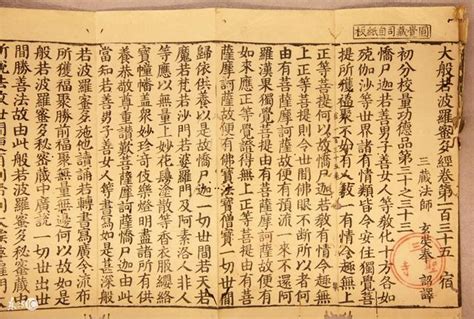 官贓藏司自紙板
大般若波羅蜜多經卷第一百三十五 宿
三藏法師 玄奘奉 詔譯
初分校量功德品第三十之三十三
憍尸迦若善男子善女人等教化十方各如
殑伽沙等世界諸有情類皆令安住獨覺菩
提所獲福聚不如有人教一有情令趣無上
正等菩提何以故憍尸迦若教有情令趣無
上正等菩提則令世間佛眼不斷所以者何
由有菩薩摩訶薩故便有預流一來不還阿
羅漢果獨覺菩提由有菩薩摩訶薩故便有
如來應正等覺證得無上正等菩提由有菩
薩摩訶薩故便有佛寶法寶僧寶一切世間
歸依供養以是故憍尸迦一切世間若天若
魔若梵若沙門若婆羅門及阿素洛人非人
等應以無量上妙花鬘塗散等香衣服瓔珞
寶幢幡蓋衆妙珍奇伎樂燈明盡諸所有供
養恭敬尊重讚歎菩薩摩訶薩憍尸迦由此
當知若善男子善女人等書寫如是甚深般
若波羅蜜多施他讀誦若轉書寫廣令流布
所獲福聚勝前福聚無量無邊何以故如是
般若波羅蜜多秘密藏中廣說一切世出世
間勝善法故由此般若波羅蜜多秘密藏中